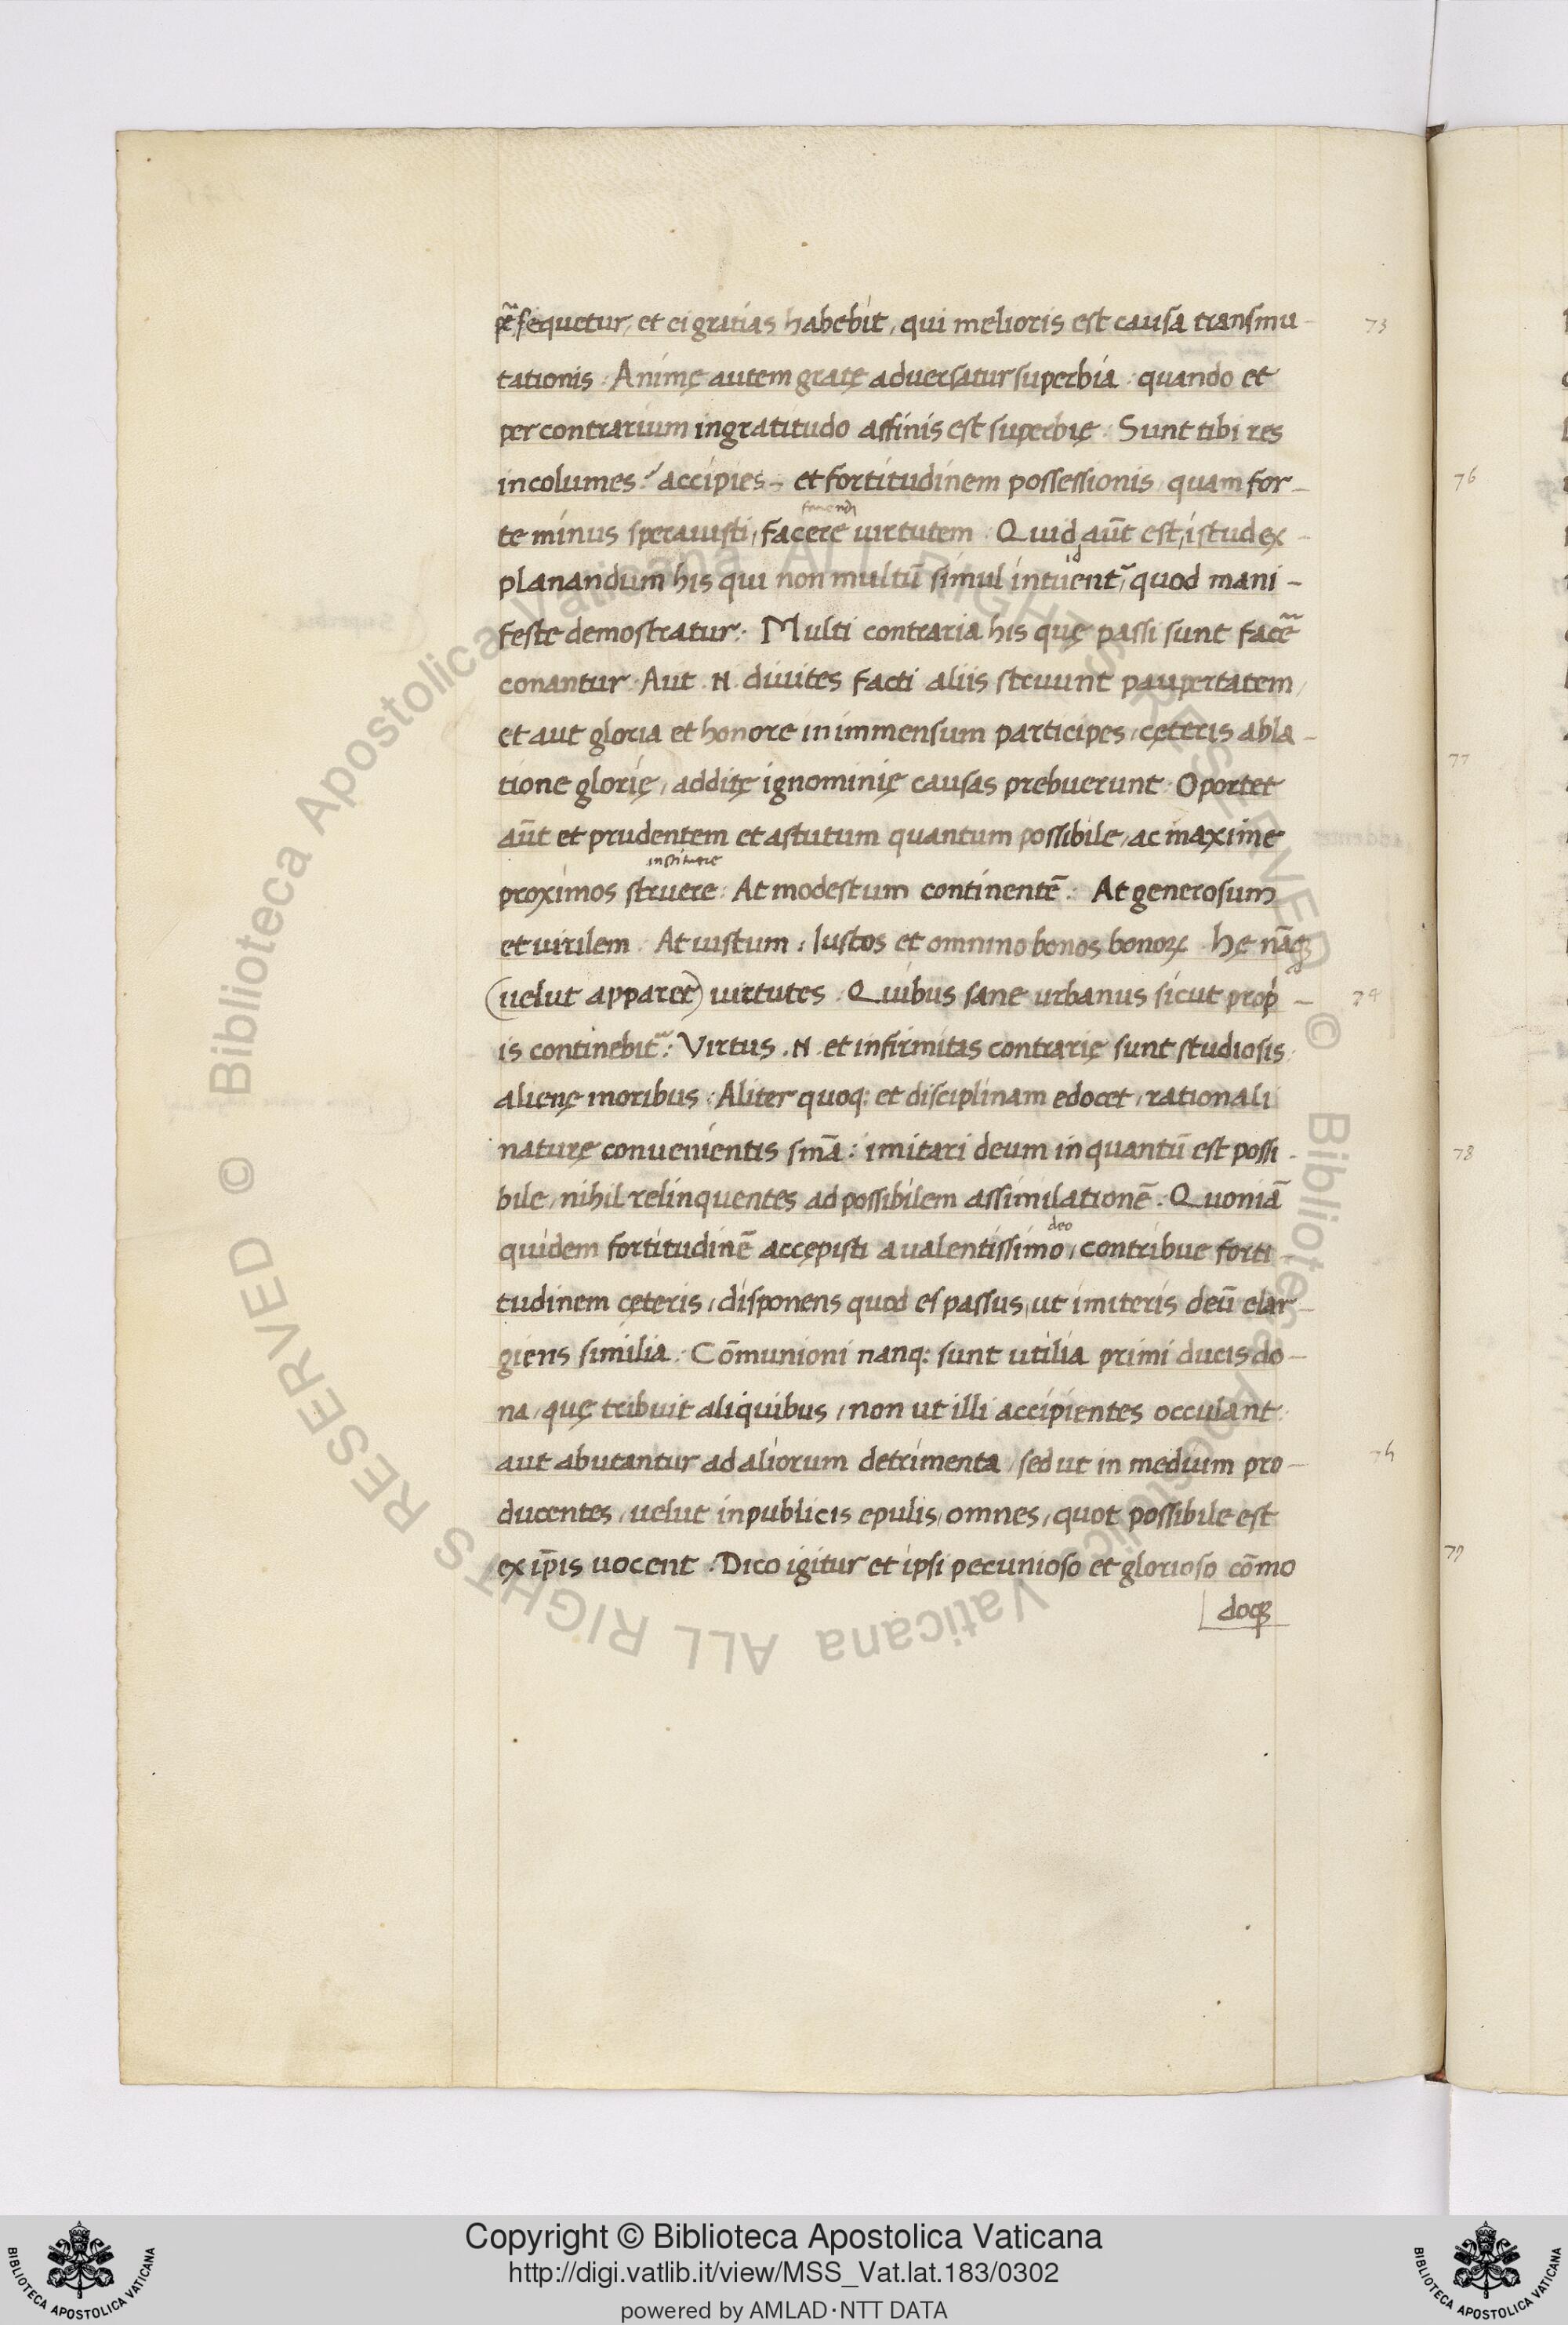 sequetur, et ei gratias habebit, qui melioris est causa transmu- 73
tationis. Animę autem gratę adversatur superbia: quando et
per contrarium ingratitudo affinis est superbię. Sunt tibi res
incolumes? accipies; et fortitudinem possessionis, quam for- 76
te minus speravisti, facere virtutem. Quid aūt est, istud ex-
planandum his qui non multū simul intuent~, quod mani-
feste demostratur: Multi contraria his quę passi sunt facē
conantur. Aut .N. divites facti aliis struunt paupertatem,
et aut gloria et honore in immensum participes, cęteris abla- 77
tione glorię, additę ignominię causas prebuerunt. Oportet
aūt et prudentem et astutum quantum possibile, ac maxime
instituere
proximos struere. At modestum continentē. At generosum
et virilem. At iustum: Iustos et omnino bonos bonoꝝ. hę nāqꝫ
(uelut apparet) virtutes. Quibus sane urbanus sicut prop- 74
is continebit~: Virtus .N. et infirmitas contrarię sunt studiosis
alienę moribus. Aliter quoq: et disciplinam edocet, rationali
naturę convenientis smā: imitari deum in quantū est possi- 78
bile, nihil relinquentes ad possibilem assimilationē. Quoniā
deo
quidem fortitudinē accępisti a valentissimo, contribue forti-
tudinem cęteris, disponens quod es passus, ut imiteris deū elar-
giens similia. Cōmunioni nanq: sunt utilia primi ducis do-
na, quę tribuit aliquibus, non ut illi accipientes occulant
aut abutantur ad aliorum detrimenta, sed ut in medium pro-
ducentes, uelut in publicis epulis, omnes, quot possibile est
ex ip̄is vocent. Dico igitur et ipsi pecunioso et glorioso cōmo 79
doqꝫ
Copyright © Biblioteca Apostolica Vaticana
http://digi.vatlib.it/view/MSS_Vat.lat.183/0302
powered by AMLAD·NTT DATA
BIBLIOTECA APOSTOLICA VATICANA
BIBLIOTECA APOSTOLICA VATICANA
© Biblioteca Apostolica Vaticana ALL RIGHTS RESERVED © Biblioteca Apostolica Vaticana ALL RIGHTS RESERVED